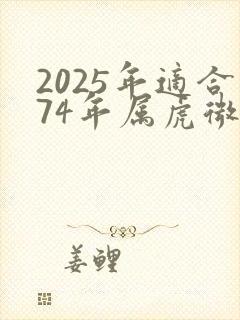 2025年適合
74年属虎微
姜鲤